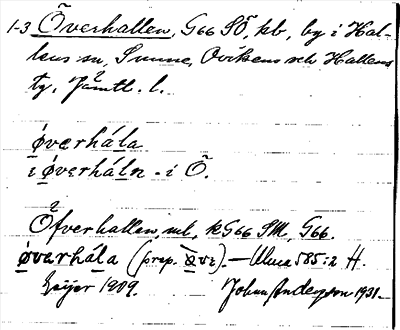 1-3 Överhallen, G66 SÖ, kb, by i Hal-
lens sn, Sunne, Ovikens och Hallens
tg, Jämtl. l.
øvərhála
i øvərháln - i Ö.
Öfverhallen, ml, kG66 SM, G66.
øvərhála (prep. i). — Ulma 585:2 H.
Geijer 1909. Johan Anderson 1931.